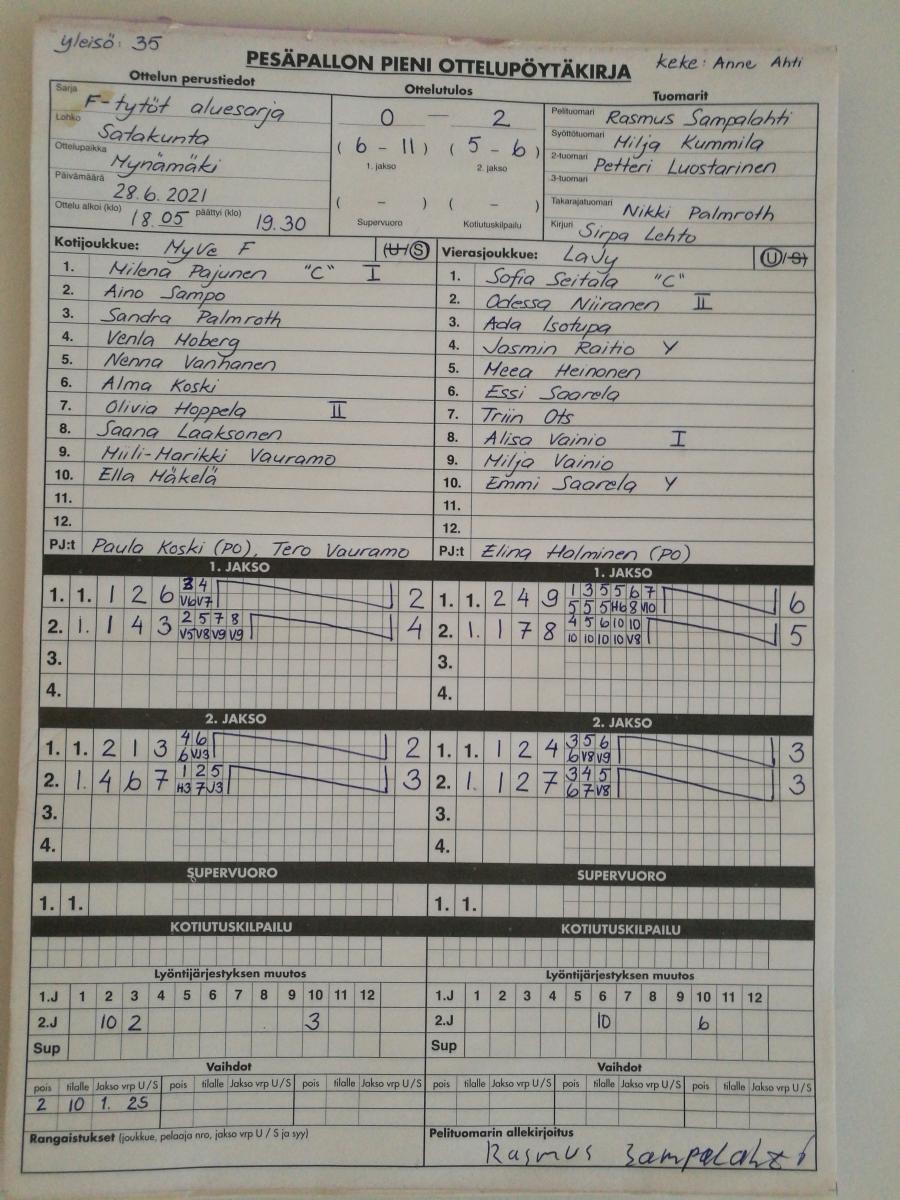 yleisö: 35
PESÄPALLON PIENI OTTELUPÖYTÄKIRJA
keke: Anne Ahti
Ottelun perustiedot
Sarja F-tytöt aluesarja
Lohko Satakunta
Ottelupaikka Mynämäki
Päivämäärä 28.6.2021
Ottelu alkoi (klo) 18.05 päättyi (klo) 19.30
Ottelutulos
0 — 2
( 6 - 11 ) ( 5 - 6 )
1. jakso 2. jakso
( - ) ( - )
Supervuoro Kotiutuskilpailu
Tuomarit
Pelituomari Rasmus Sampalahti
Syöttötuomari Milja Kummila
2-tuomari Petteri Luostarinen
3-tuomari
Takarajatuomari Nikki Palmroth
Kirjuri Sirpa Lehto
Kotijoukkue: MyVe F (U/S)
1. Milena Pajunen "C" I
2. Aino Sampo
3. Sandra Palmroth
4. Venla Hoberg
5. Nenna Vanhanen
6. Alma Koski
7. Olivia Hoppela II
8. Saana Laaksonen
9. Miili-Marikki Vauramo
10. Ella Mäkelä
11.
12.
PJ:t Paula Koski (PO), Tero Vauramo
Vierasjoukkue: LaJy (U/S)
1. Sofia Seitala "C"
2. Odessa Niiranen II
3. Ada Isotupa
4. Jasmin Raitio Y
5. Meea Heinonen
6. Essi Saarela
7. Triin Ots
8. Alisa Vainio I
9. Milja Vainio
10. Emmi Saarela Y
11.
12.
PJ:t Elina Halminen (PO)
1. JAKSO
1. 1. 1 2 6 3 4 2
V6 V7
2. 1. 1 4 3 2 5 7 8 4
V5 V8 V9 V9
3.
4.
1. JAKSO
1. 1. 2 4 9 1 3 5 5 6 7 6
5 5 5 H6 8 V10
2. 1. 1 7 8 4 5 6 10 10 5
10 10 10 10 V8
3.
4.
2. JAKSO
1. 1. 2 1 3 4 6 2
6 VJ3
2. 1. 4 6 7 1 2 5 3
H3 7 J3
3.
4.
2. JAKSO
1. 1. 1 2 4 3 5 6 3
6 V8 V9
2. 1. 1 2 7 3 4 5 3
6 7 V8
3.
4.
SUPERVUORO
1. 1.
SUPERVUORO
1. 1.
KOTIUTUSKILPAILU
KOTIUTUSKILPAILU
Lyöntijärjestyksen muutos
1.J 1 2 3 4 5 6 7 8 9 10 11 12
2.J 10 2 3
Sup
Lyöntijärjestyksen muutos
1.J 1 2 3 4 5 6 7 8 9 10 11 12
2.J 10 6
Sup
Vaihdot
pois tilalle Jakso vrp U/S pois tilalle Jakso vrp U/S pois tilalle Jakso vrp U/S
2 10 1. 2S
Vaihdot
pois tilalle Jakso vrp U/S pois tilalle Jakso vrp U/S pois tilalle Jakso vrp U/S
Rangaistukset (joukkue, pelaaja nro, jakso vrp U / S ja syy)
Pelituomarin allekirjoitus
Rasmus Sampalahti